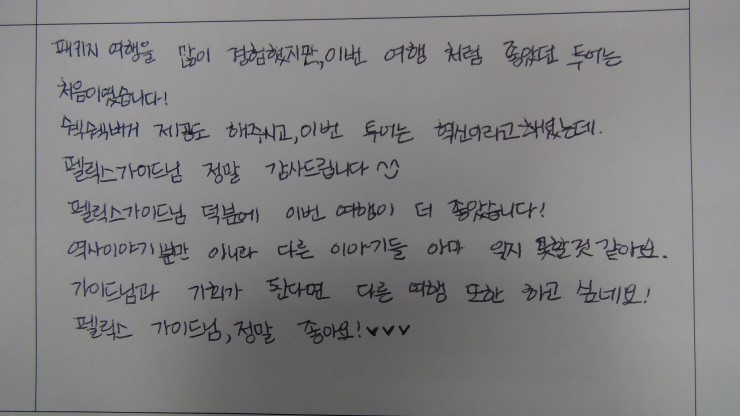 패키지 여행을 많이 경험했지만, 이번 여행 처럼 좋았던 투어는
처음이였습니다!
쉑쉑버거 제공도 해주시고, 이번 투어는 혁신이라고 해였는데.
펠릭스가이드님 정말 감사드립니다 ^^
펠릭스가이드님 덕분에 이번 여행이 더 좋았습니다!
역사이야기 뿐만 아니라 다른 이야기들 아마 잊지 못할것 같아요.
가이드님과 기회가 된다면 다른 여행 또한 하고 싶네요!
펠릭스 가이드님, 정말 좋아요! ♥♥♥